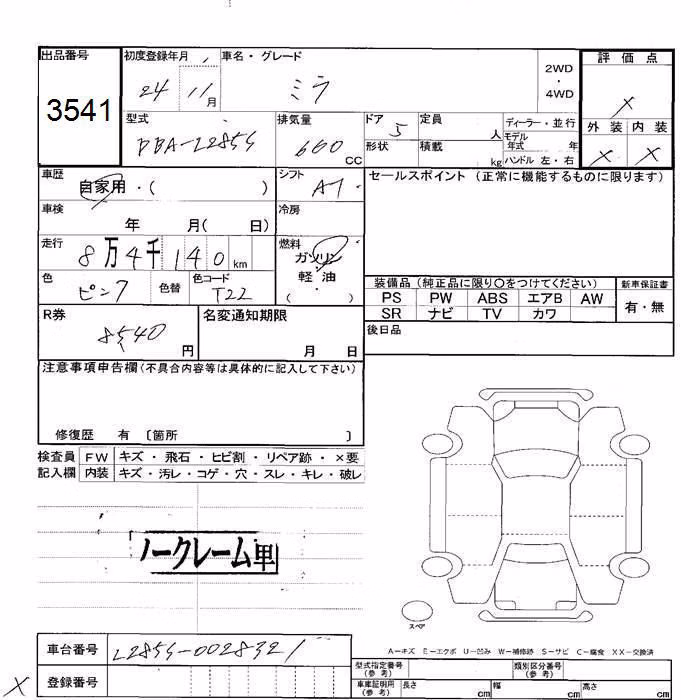 出品番号
3541
初度登録年月
24 11月
車名・グレード
ミラ
2WD
・
4WD
評価点
X
外装 内装
X X
型式
DBA-L285S
排気量
660 CC
ドア 5
形状
定員 人
積載 kg
ディーラー・並行
モデル年式 年
ハンドル 左・右
車歴
自家用・( )
シフト
AT
車検
年 月( 日)
冷房
走行
8万4千140km
燃料
ガソリン
軽油
( )
色
ピンク
色替
色コード
T22
R券
8540円
名変通知期限
月 日
セールスポイント(正常に機能するものに限ります)
装備品(純正品に限り○をつけてください)
PS PW ABS エアB AW
SR ナビ TV カワ
新車保証書
有・無
後日品
注意事項申告欄(不具合内容等は具体的に記入して下さい)
修復歴 有 〔箇所 〕
検査員記入欄
FW キズ・飛石・ヒビ割・リペア跡・×要
内装 キズ・汚レ・コゲ・穴・スレ・キレ・破レ
ノークレーム車
スペア
A－キズ E－エクボ U－凹み W－補修跡 S－サビ C－腐食 XX－交換済
車台番号
L285S-0028321
X
登録番号
型式指定番号(参考)
類別区分番号(参考)
車庫証明用(参考)
長さ cm
幅 cm
高さ cm